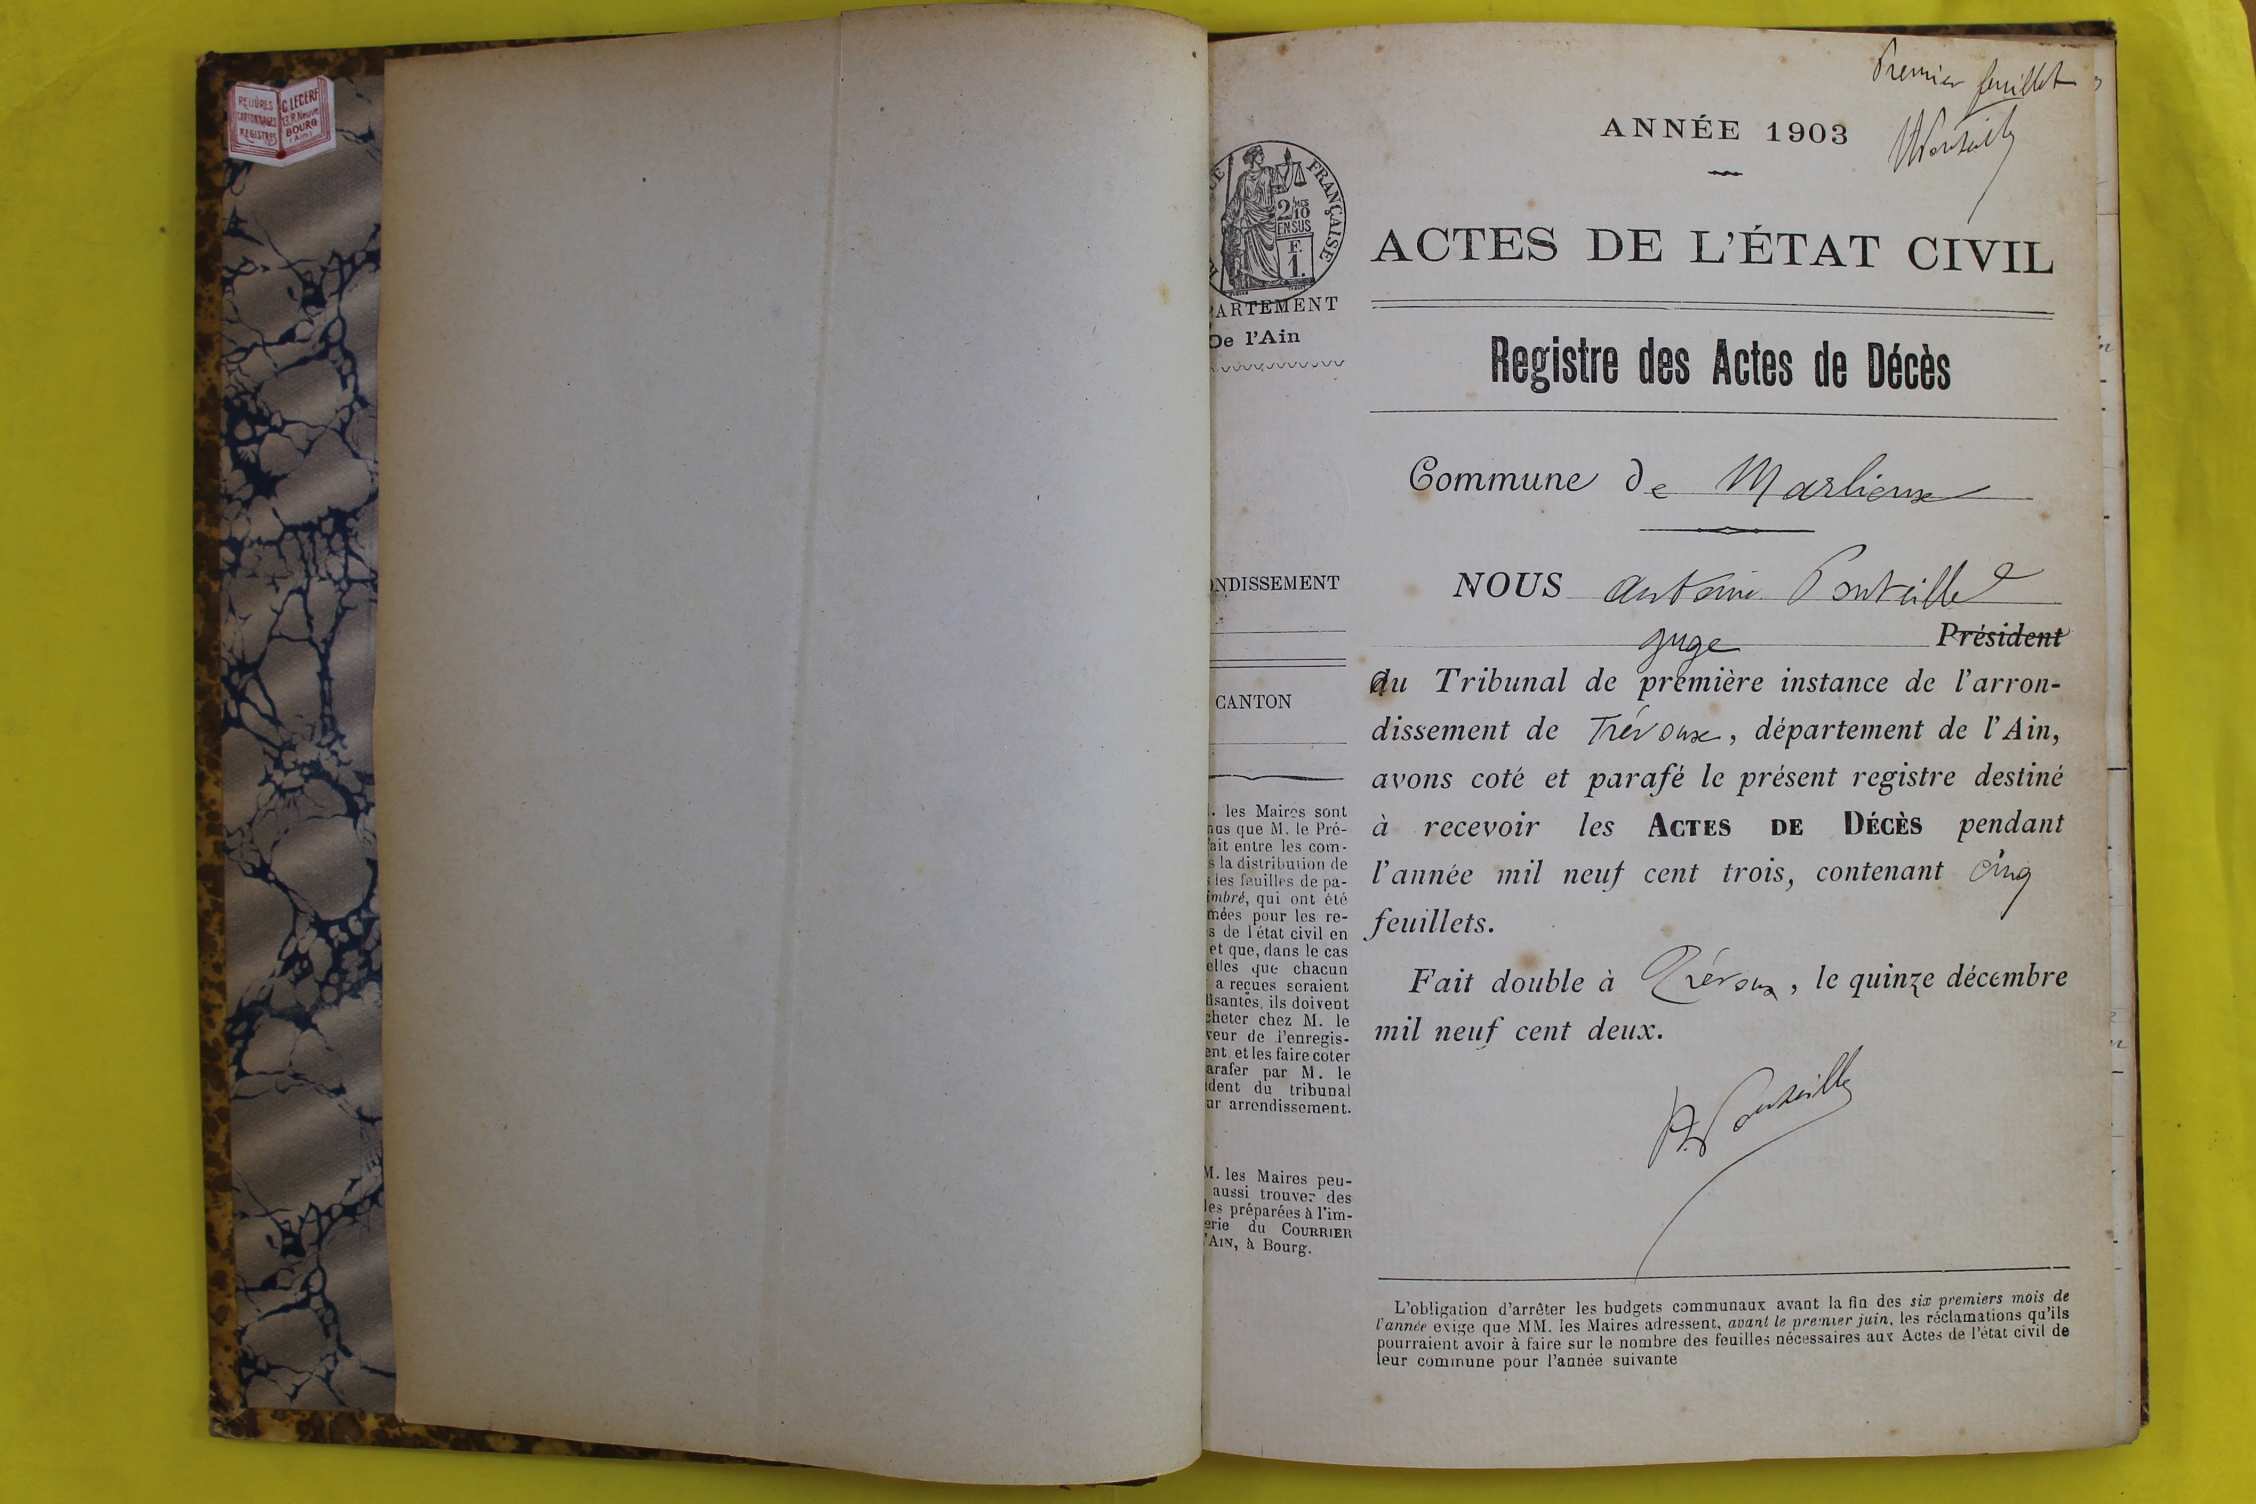 RELIÛRES
CARTONNAGES
REGISTRES
C. LECERF
13, R. Neuve
BOURG
(Ain)
Premier feuillet
ANNÉE 1903
FRANÇAISE
2 10 MES
EN SUS
F.
1.
ACTES DE L'ÉTAT CIVIL
PARTEMENT
De l'Ain
Registre des Actes de Décès
Commune de Marlieux
NOUS Antoine Ponteille
juge Président
ONDISSEMENT
CANTON
au Tribunal de première instance de l'arron-
dissement de Trévoux, département de l'Ain,
avons coté et parafé le présent registre destiné
à recevoir les ACTES DE DÉCÈS pendant
l'année mil neuf cent trois, contenant cinq
feuillets.
Fait double à Trévoux, le quinze décembre
mil neuf cent deux.
A. Ponteille
. les Maires sont
nus que M. le Pré-
fait entre les com-
s la distribution de
s les feuilles de pa-
imbré, qui ont été
mées pour les re-
s de l'état civil en
et que, dans le cas
elles que chacun
a reçues seraient
fisantes, ils doivent
cheter chez M. le
veur de l'enregis-
ent et les faire coter
arafer par M. le
ident du tribunal
ur arrondissement.
M. les Maires peu-
aussi trouver des
les préparées à l'im-
erie du COURRIER
l'AIN, à Bourg.
L'obligation d'arrêter les budgets communaux avant la fin des six premiers mois de
l'année exige que MM. les Maires adressent, avant le premier juin, les réclamations qu'ils
pourraient avoir à faire sur le nombre des feuilles nécessaires aux Actes de l'état civil de
leur commune pour l'année suivante